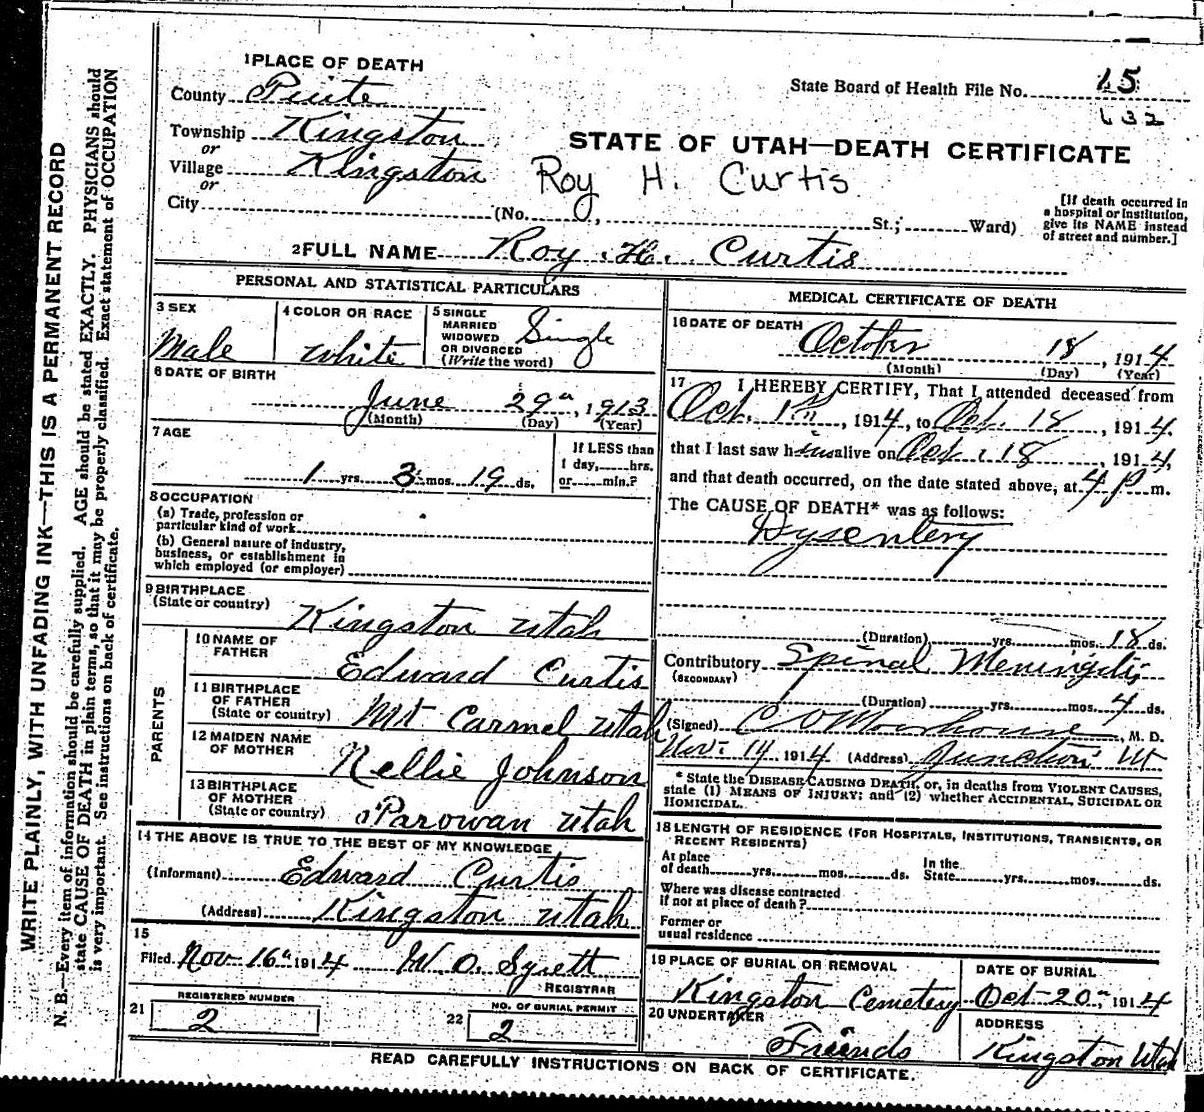 1 PLACE OF DEATH
County Piute
State Board of Health File No. 15
632
Township Kingston
or
Village Kingston
or
City (No. , St.; Ward)
STATE OF UTAH—DEATH CERTIFICATE
Roy H. Curtis
[If death occurred in a hospital or institution, give its NAME instead of street and number.]
2 FULL NAME Roy H. Curtis
PERSONAL AND STATISTICAL PARTICULARS
3 SEX
Male
4 COLOR OR RACE
White
5 SINGLE
MARRIED
WIDOWED
OR DIVORCED
(Write the word)
Single
6 DATE OF BIRTH
June 29", 1913
(Month) (Day) (Year)
7 AGE
1 yrs. 3 mos. 19 ds.
If LESS than
1 day, hrs.
or min.?
8 OCCUPATION
(a) Trade, profession or
particular kind of work
(b) General nature of industry,
business, or establishment in
which employed (or employer)
9 BIRTHPLACE
(State or country)
Kingston Utah
PARENTS
10 NAME OF
FATHER
Edward Curtis
11 BIRTHPLACE
OF FATHER
(State or country)
Mt Carmel Utah
12 MAIDEN NAME
OF MOTHER
Nellie Johnson
13 BIRTHPLACE
OF MOTHER
(State or country)
Parowan Utah
14 THE ABOVE IS TRUE TO THE BEST OF MY KNOWLEDGE
(Informant) Edward Curtis
(Address) Kingston Utah
15
Filed Nov 16", 1914 W. O. Syrett
REGISTRAR
21 REGISTERED NUMBER
2
22 NO. OF BURIAL PERMIT
2
MEDICAL CERTIFICATE OF DEATH
16 DATE OF DEATH
October 18, 1914
(Month) (Day) (Year)
17 I HEREBY CERTIFY, That I attended deceased from
Oct. 1st, 1914, to Oct. 18, 1914.
that I last saw him alive on Oct. 18, 1914,
and that death occurred, on the date stated above, at 4 P m.
The CAUSE OF DEATH* was as follows:
Dysentery
(Duration) yrs. mos. 18 ds.
Contributory Spinal Meningitis
(SECONDARY)
(Duration) yrs. mos. 4 ds.
(Signed) C O Moorhouse, M. D.
Nov. 14 1914 (Address) Junction Ut
* State the DISEASE CAUSING DEATH, or, in deaths from VIOLENT CAUSES,
state (1) MEANS OF INJURY; and (2) whether ACCIDENTAL, SUICIDAL OR
HOMICIDAL.
18 LENGTH OF RESIDENCE (FOR HOSPITALS, INSTITUTIONS, TRANSIENTS, OR
RECENT RESIDENTS)
At place
of death yrs. mos. ds.
In the
State yrs. mos. ds.
Where was disease contracted
if not at place of death?
Former or
usual residence
19 PLACE OF BURIAL OR REMOVAL
Kingston Cemetery
DATE OF BURIAL
Oct 20", 1914
20 UNDERTAKER
Friends
ADDRESS
Kingston Utah
READ CAREFULLY INSTRUCTIONS ON BACK OF CERTIFICATE.
WRITE PLAINLY, WITH UNFADING INK—THIS IS A PERMANENT RECORD
N. B.—Every item of information should be carefully supplied. AGE should be stated EXACTLY. PHYSICIANS should
state CAUSE OF DEATH in plain terms, so that it may be properly classified. Exact statement of OCCUPATION
is very important. See instructions on back of certificate.